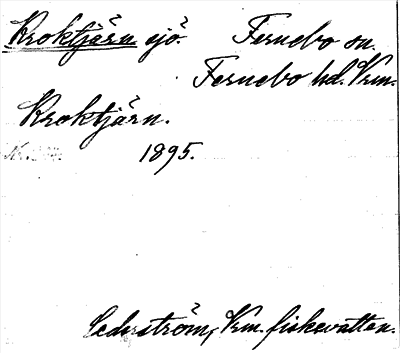 Kroktjärn sjö. Fernebo sn.
Fernebo hd. Vrm.
Kroktjärn.
1895.
Cederström, Vrm. fiskevatten.